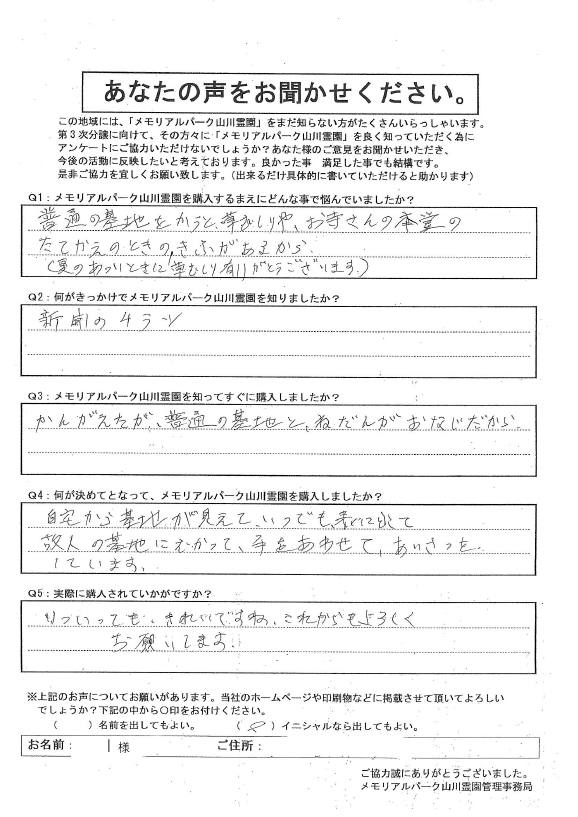 あなたの声をお聞かせください。
この地域には、「メモリアルパーク山川霊園」をまだ知らない方がたくさんいらっしゃいます。
第3次分譲に向けて、その方々に「メモリアルパーク山川霊園」を良く知っていただく為に
アンケートにご協力いただけないでしょうか？あなた様のご意見をお聞かせいただき、
今後の活動に反映したいと考えております。良かった事　満足した事でも結構です。
是非ご協力を宜しくお願い致します。（出来るだけ具体的に書いていただけると助かります）
Q1：メモリアルパーク山川霊園を購入するまえにどんな事で悩んでいましたか？
普通の墓地をかうと、草むしりや、お寺さんの本堂の
たてかえのときの、きふがあるから.
(夏のあついときに草むしり有りがとうございます.)
Q2：何がきっかけでメモリアルパーク山川霊園を知りましたか？
新聞のチラシ
Q3：メモリアルパーク山川霊園を知ってすぐに購入しましたか？
かんがえたが、普通の墓地と、ねだんがおなじだから.
Q4：何が決めてとなって、メモリアルパーク山川霊園を購入しましたか？
自宅から墓地が見えて、いつでも、表に出て
故人の墓地にむかって、手をあわせて、あいさつを.
しています.
Q5：実際に購入されていかがですか？
いついっても、きれいですね、これからもよろしく
お願いします.
※上記のお声についてお願いがあります。当社のホームページや印刷物などに掲載させて頂いてよろしい
でしょうか？下記の中から○印をお付けください。
（　　）名前を出してもよい。　（　○　）イニシャルなら出してもよい。
お名前：　　様　　ご住所：
ご協力誠にありがとうございました。
メモリアルパーク山川霊園管理事務局